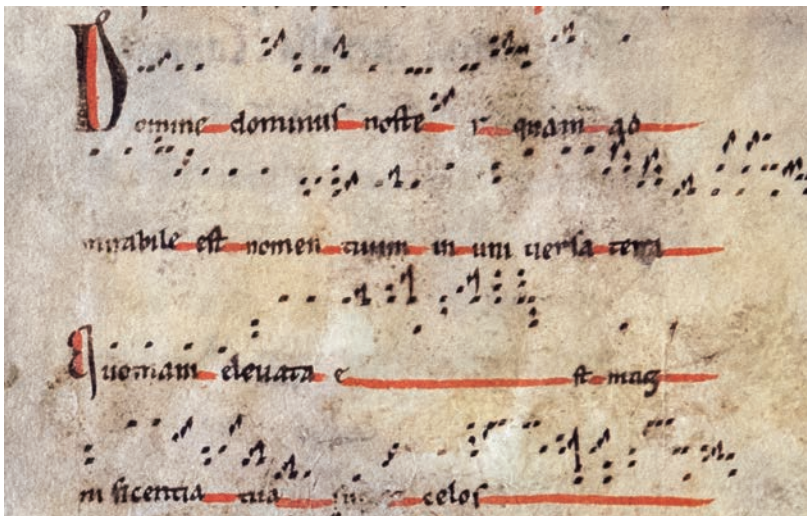 Domine dominus noster quam ad
mirabile est nomen tuum in universa terra
Quoniam elevata est mag
nificentia tua celos